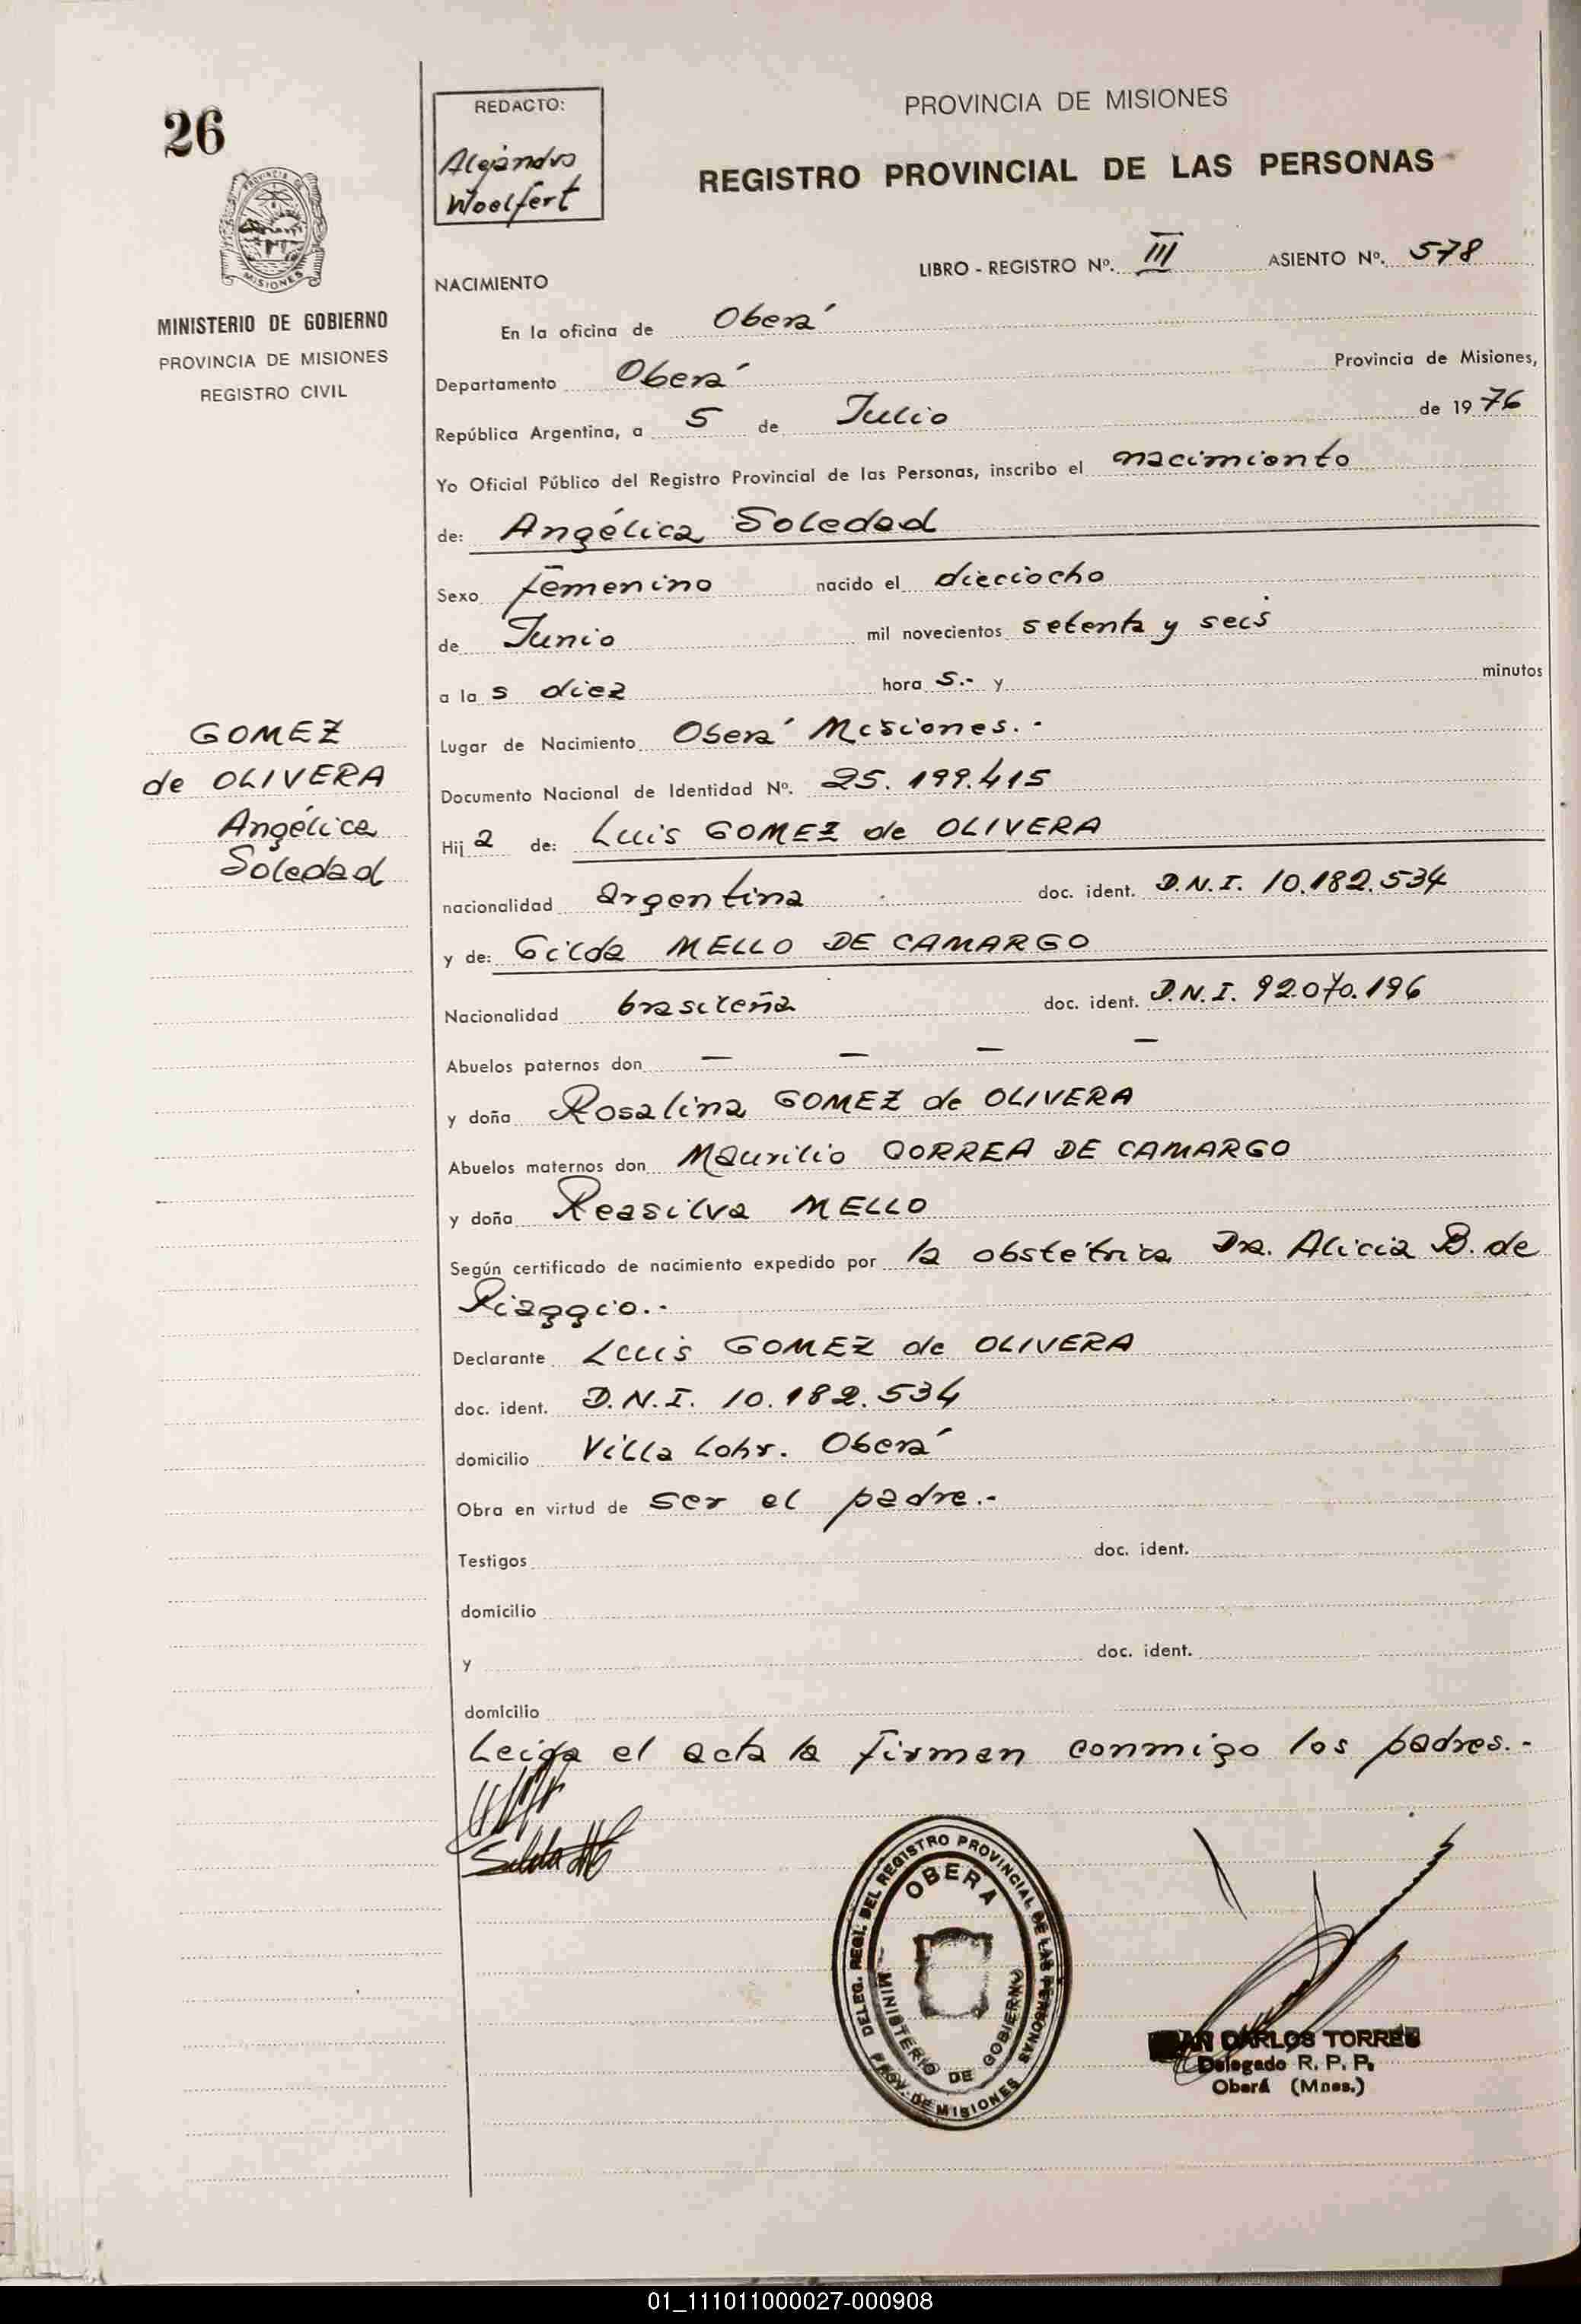 26
PROVINCIA DE MISIONES
MINISTERIO DE GOBIERNO
PROVINCIA DE MISIONES
REGISTRO CIVIL
GOMEZ
de OLIVERA
Angélica
Soledad
REDACTO:
Alejandro
Woelfert
PROVINCIA DE MISIONES
REGISTRO PROVINCIAL DE LAS PERSONAS
LIBRO - REGISTRO Nº. III ASIENTO Nº. 578
NACIMIENTO
En la oficina de Oberá
Departamento Oberá Provincia de Misiones,
República Argentina, a 5 de Julio de 1976
Yo Oficial Público del Registro Provincial de las Personas, inscribo el nacimiento
de: Angélica Soledad
Sexo femenino nacido el dieciocho
de Junio mil novecientos setenta y seis
a la s diez hora s.- y minutos
Lugar de Nacimiento Oberá Misiones.-
Documento Nacional de Identidad Nº. 25.199.415
Hij a de: Luis GOMEZ de OLIVERA
nacionalidad argentina doc. ident. D.N.I. 10.182.534
y de: Gilda MELLO DE CAMARGO
Nacionalidad brasileña doc. ident. D.N.I. 92.070.196
Abuelos paternos don — — — —
y doña Rosalina GOMEZ de OLIVERA
Abuelos maternos don Maurilio CORREA DE CAMARGO
y doña Reasilva MELLO
Según certificado de nacimiento expedido por la obstétrica Dra. Alicia B. de
Piaggio.-
Declarante Luis GOMEZ de OLIVERA
doc. ident. D.N.I. 10.182.534
domicilio Villa Lohr. Oberá
Obra en virtud de ser el padre.-
Testigos doc. ident.
domicilio
y doc. ident.
domicilio
Leida el acta la firman conmigo los padres.-
DELEG. REGI. DEL REGISTRO PROVINCIAL DE LAS PERSONAS
OBERA
MINISTERIO DE GOBIERNO
PROV. DE MISIONES
CARLOS TORRES
Delegado R. P. P.
Oberá (Mnes.)
01_111011000027-000908